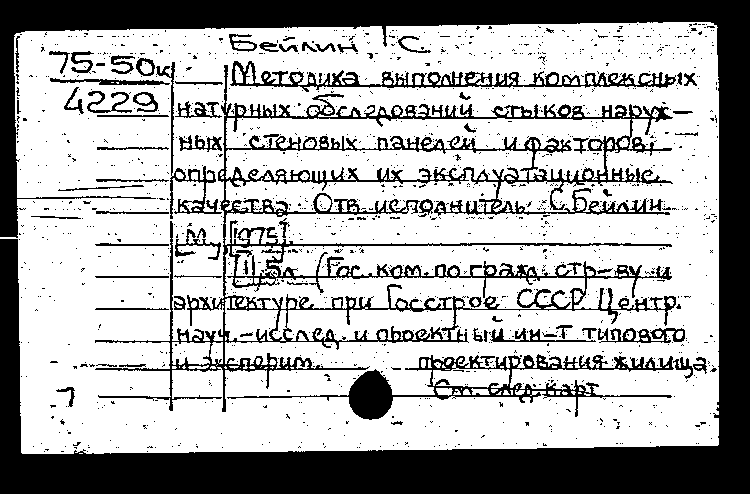 Бейлин, С.
75-50к
4229
Методика выполнения комплексных
натурных обследований стыков наруж-
ных стеновых панелей и факторов,
определяющих их эксплуатационные
качества. Отв. исполнитель С. Бейлин.
[М., 1975].
[1], 5л. (Гос. ком. по гражд. стр-ву и
архитектуре при Госстрое СССР. Центр.
науч.-исслед. и проектный ин-т типового
и эксперим. проектирования жилища.
См. след. карт